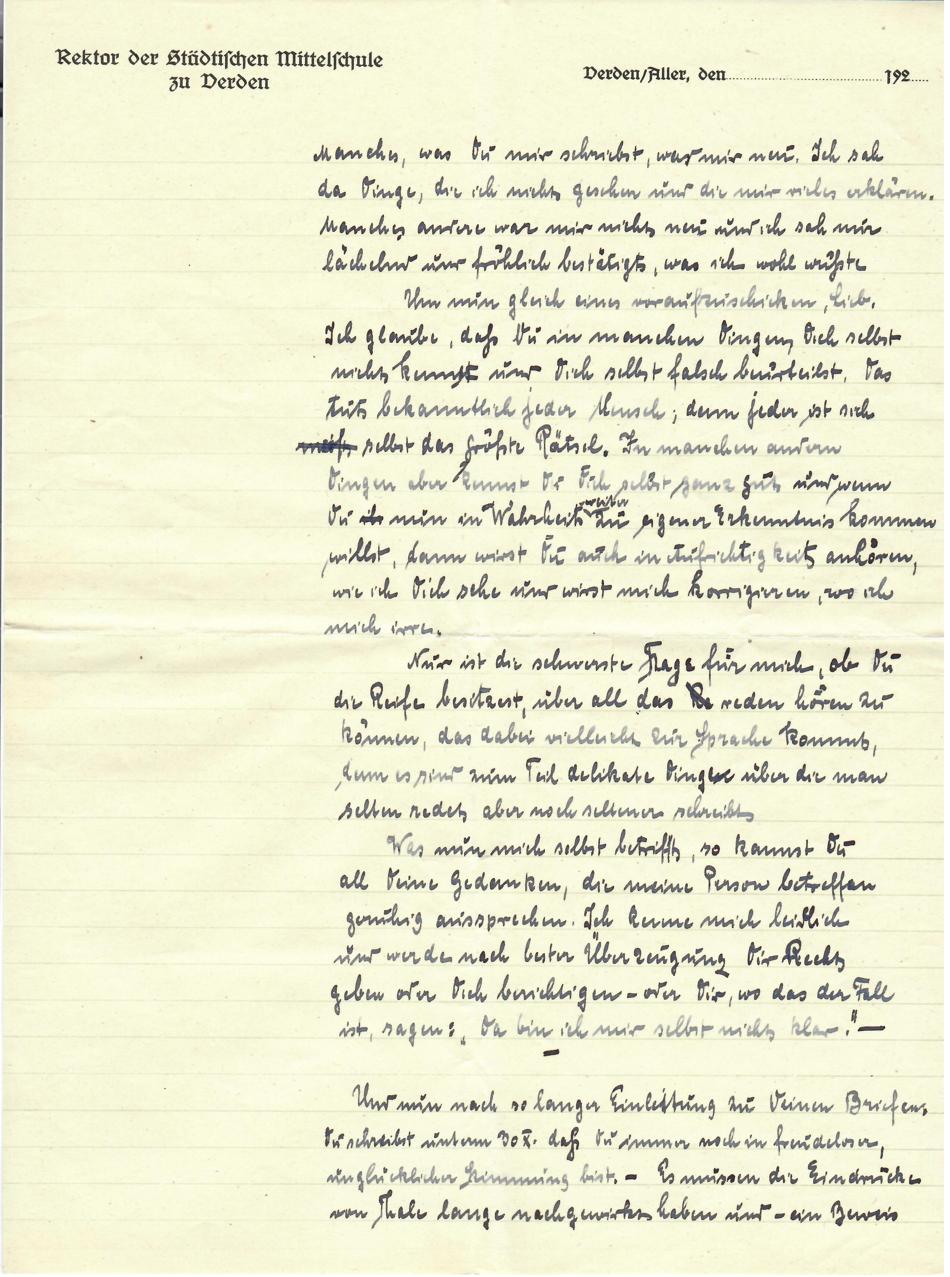 Rektor der Städtischen Mittelschule
zu Verden
Verden/Aller, den 192
Manches, was Du mir schriebst, war mir neu. Ich sah
da Dinge, die ich nicht gesehen und die mir vieles erklären.
Manches andere war mir nicht neu und ich sah mir
lächelnd und fröhlich bestätigt, was ich wohl wußte
Um nun gleich eines voraufzuschicken, Lieb.
Ich glaube, daß Du in manchen Dingen Dich selbst
nicht kennst und Dich selbst falsch beurteilst. Das
tut bekanntlich jeder Mensch; denn jeder ist sich
selbst das größte Rätsel. In manchen andern
Dingen aber kennst Du Dich selbst ganz gut und wenn
Du nun in Wahrheit weiter zu eigener Erkenntnis kommen
willst, dann wirst Du auch in Aufrichtigkeit anhören,
wie ich Dich sehe und wirst mich korrigieren, wo ich
mich irre.
Nur ist die schwerste Frage für mich, ob Du
die Reife besitzest, über all das reden hören zu
können, das dabei vielleicht zur Sprache kommt,
denn es sind zum Teil delikate Dinge über die man
selten redet, aber noch seltener schreibt
Was nun mich selbst betrifft, so kannst Du
all Deine Gedanken, die meine Person betreffen
geruhig aussprechen. Ich kenne mich leidlich
und werde nach bester Überzeugung Dir Recht
geben oder Dich berichtigen – oder Dir, wo das der Fall
ist, sagen: „Da bin ich mir selbst nicht klar." —
–
Und nun nach so langer Einleitung zu Deinen Briefen.
Du schreibst unterm 30 X. daß Du immer noch in freudeloser,
unglücklicher Stimmung bist. – Es müssen die Eindrücke
von Thale lange nachgewirkt haben und – ein Beweis